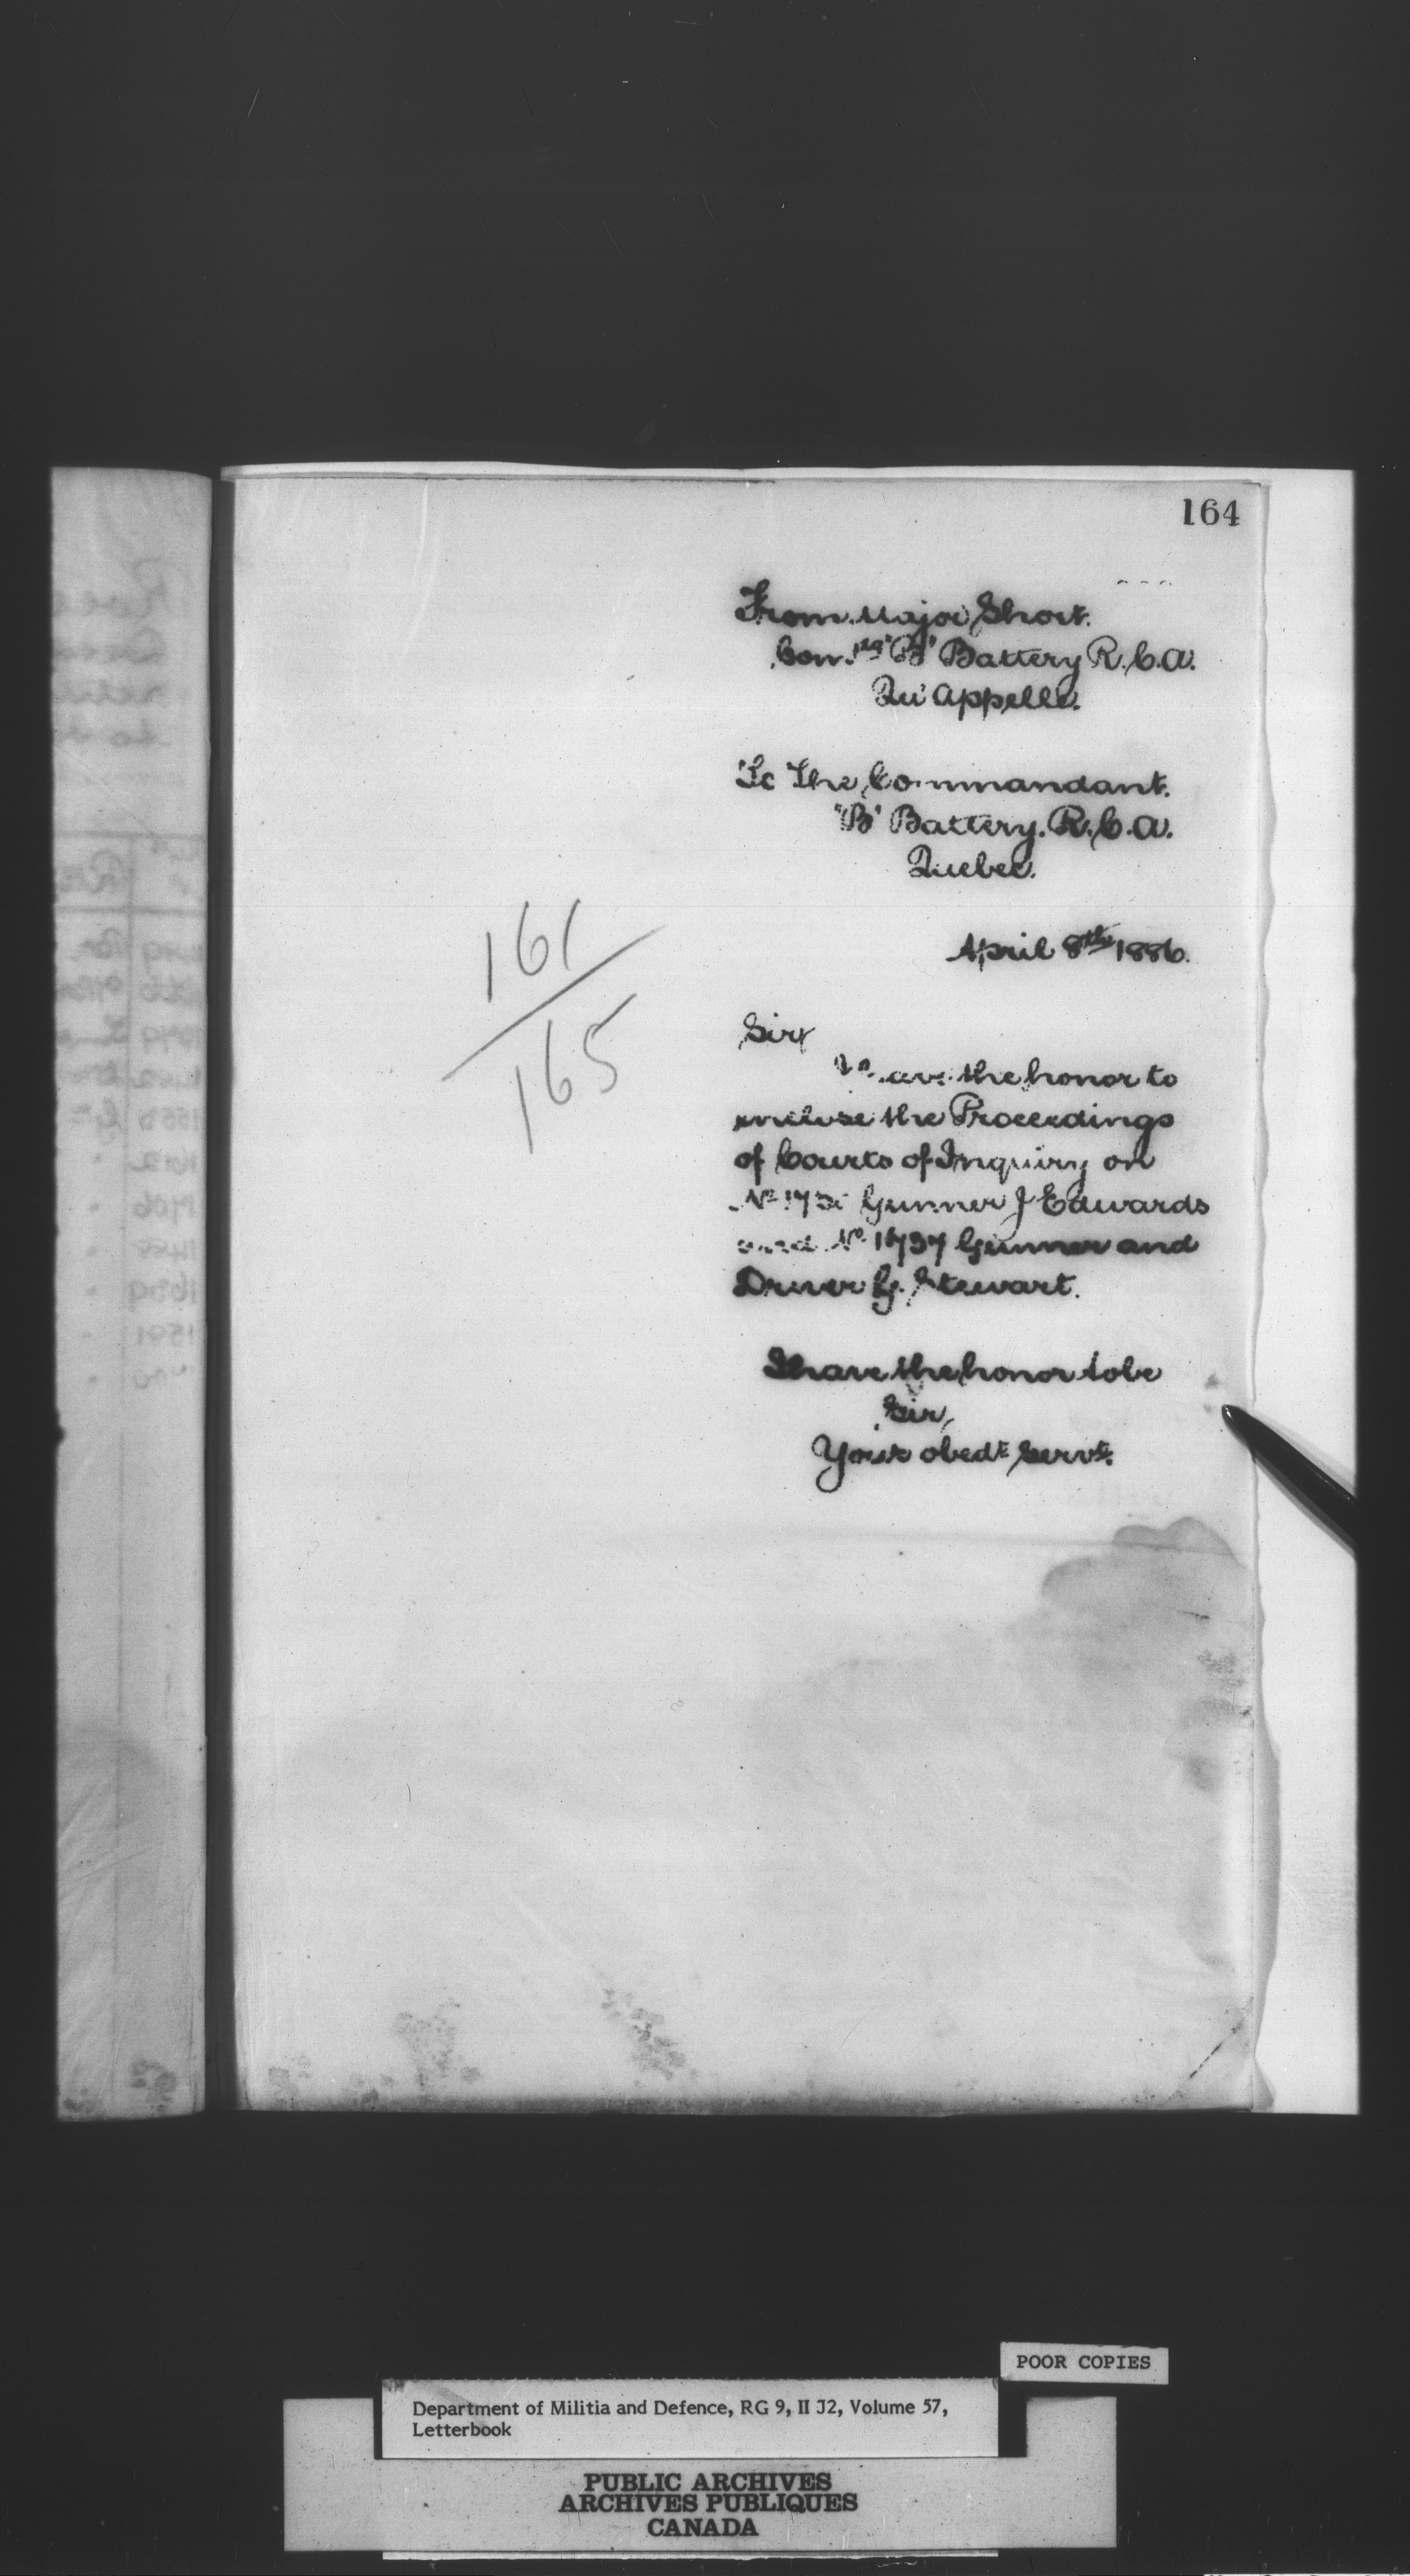 164
From Major Short.
Com.dg "B" Battery R.C.A.
Qu'Appelle.
To The Commandant.
"B" Battery. R.C.A.
Quebec.
April 8th 1886.
161
165
Sir,
I have the honor to
enclose the Proceedings
of Courts of Inquiry on
No. Gunner J Edwards
and No. 1737 Gunner and
Driver G. Stewart.
I have the honor to be
Sir,
Your obedt servt.
POOR COPIES
Department of Militia and Defence, RG 9, II J2, Volume 57,
Letterbook
PUBLIC ARCHIVES
ARCHIVES PUBLIQUES
CANADA